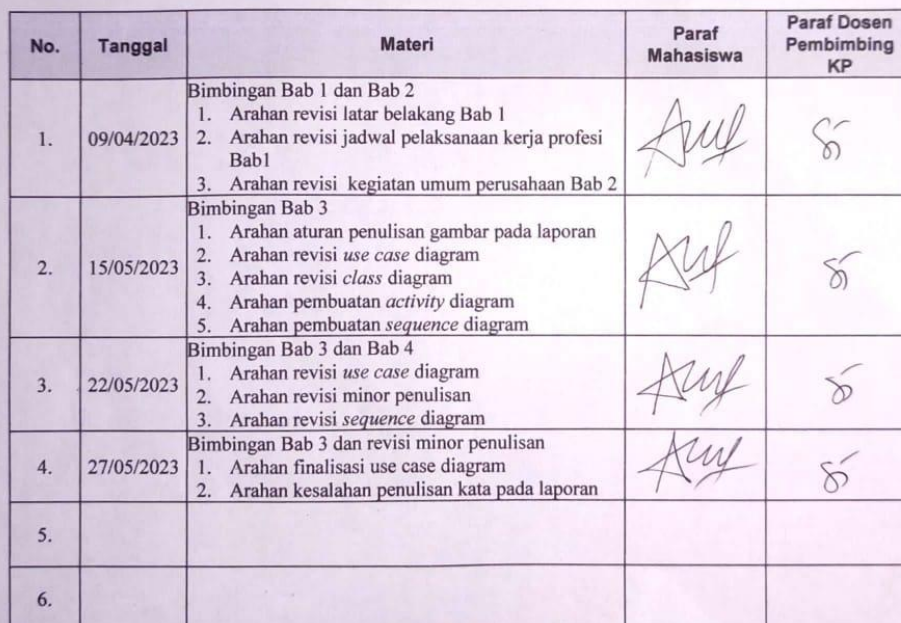 No.
Tanggal
Materi
Paraf
Mahasiswa
Paraf Dosen
Pembimbing
KP
1.
09/04/2023
Bimbingan Bab 1 dan Bab 2
1. Arahan revisi latar belakang Bab 1
2. Arahan revisi jadwal pelaksanaan kerja profesi
Bab1
3. Arahan revisi kegiatan umum perusahaan Bab 2
2.
15/05/2023
Bimbingan Bab 3
1. Arahan aturan penulisan gambar pada laporan
2. Arahan revisi use case diagram
3. Arahan revisi class diagram
4. Arahan pembuatan activity diagram
5. Arahan pembuatan sequence diagram
3.
22/05/2023
Bimbingan Bab 3 dan Bab 4
1. Arahan revisi use case diagram
2. Arahan revisi minor penulisan
3. Arahan revisi sequence diagram
4.
27/05/2023
Bimbingan Bab 3 dan revisi minor penulisan
1. Arahan finalisasi use case diagram
2. Arahan kesalahan penulisan kata pada laporan
5.
6.